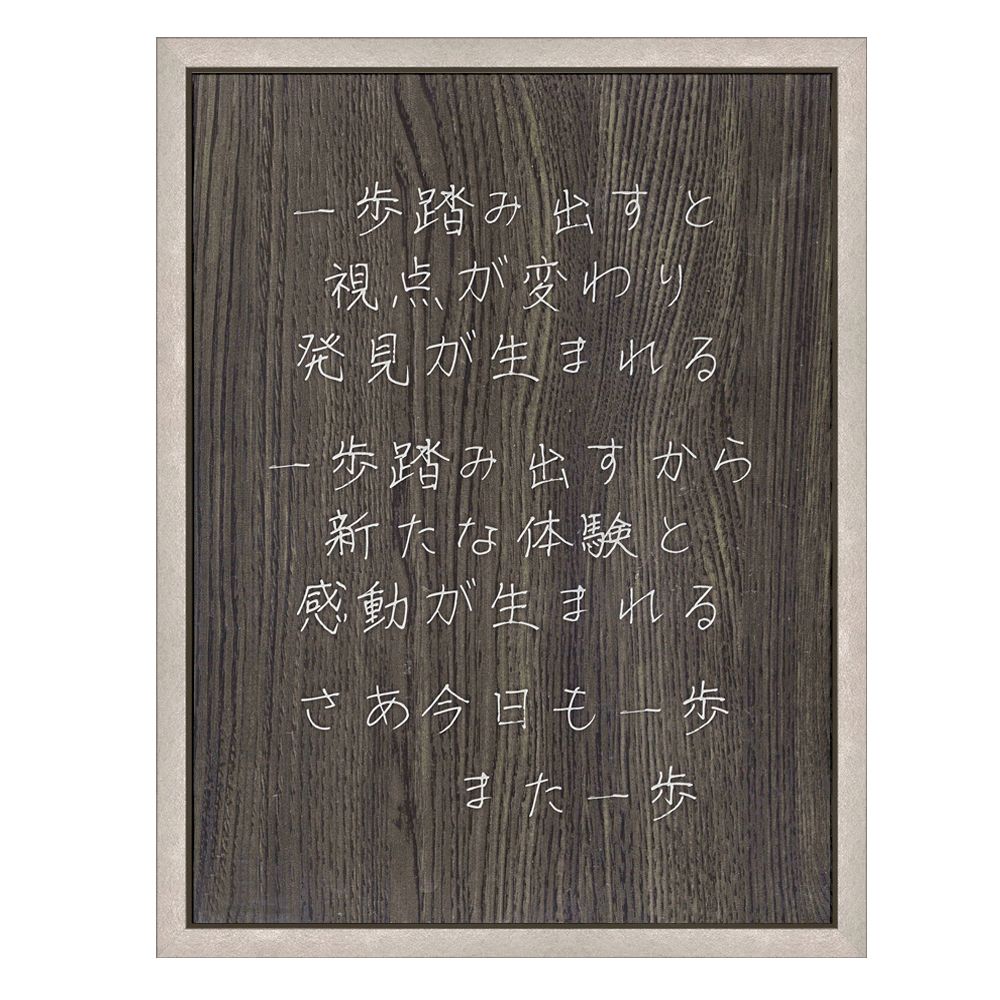 一歩踏み出すと
視点が変わり
発見が生まれる
一歩踏み出すから
新たな体験と
感動が生まれる
さあ今日も一歩
また一歩